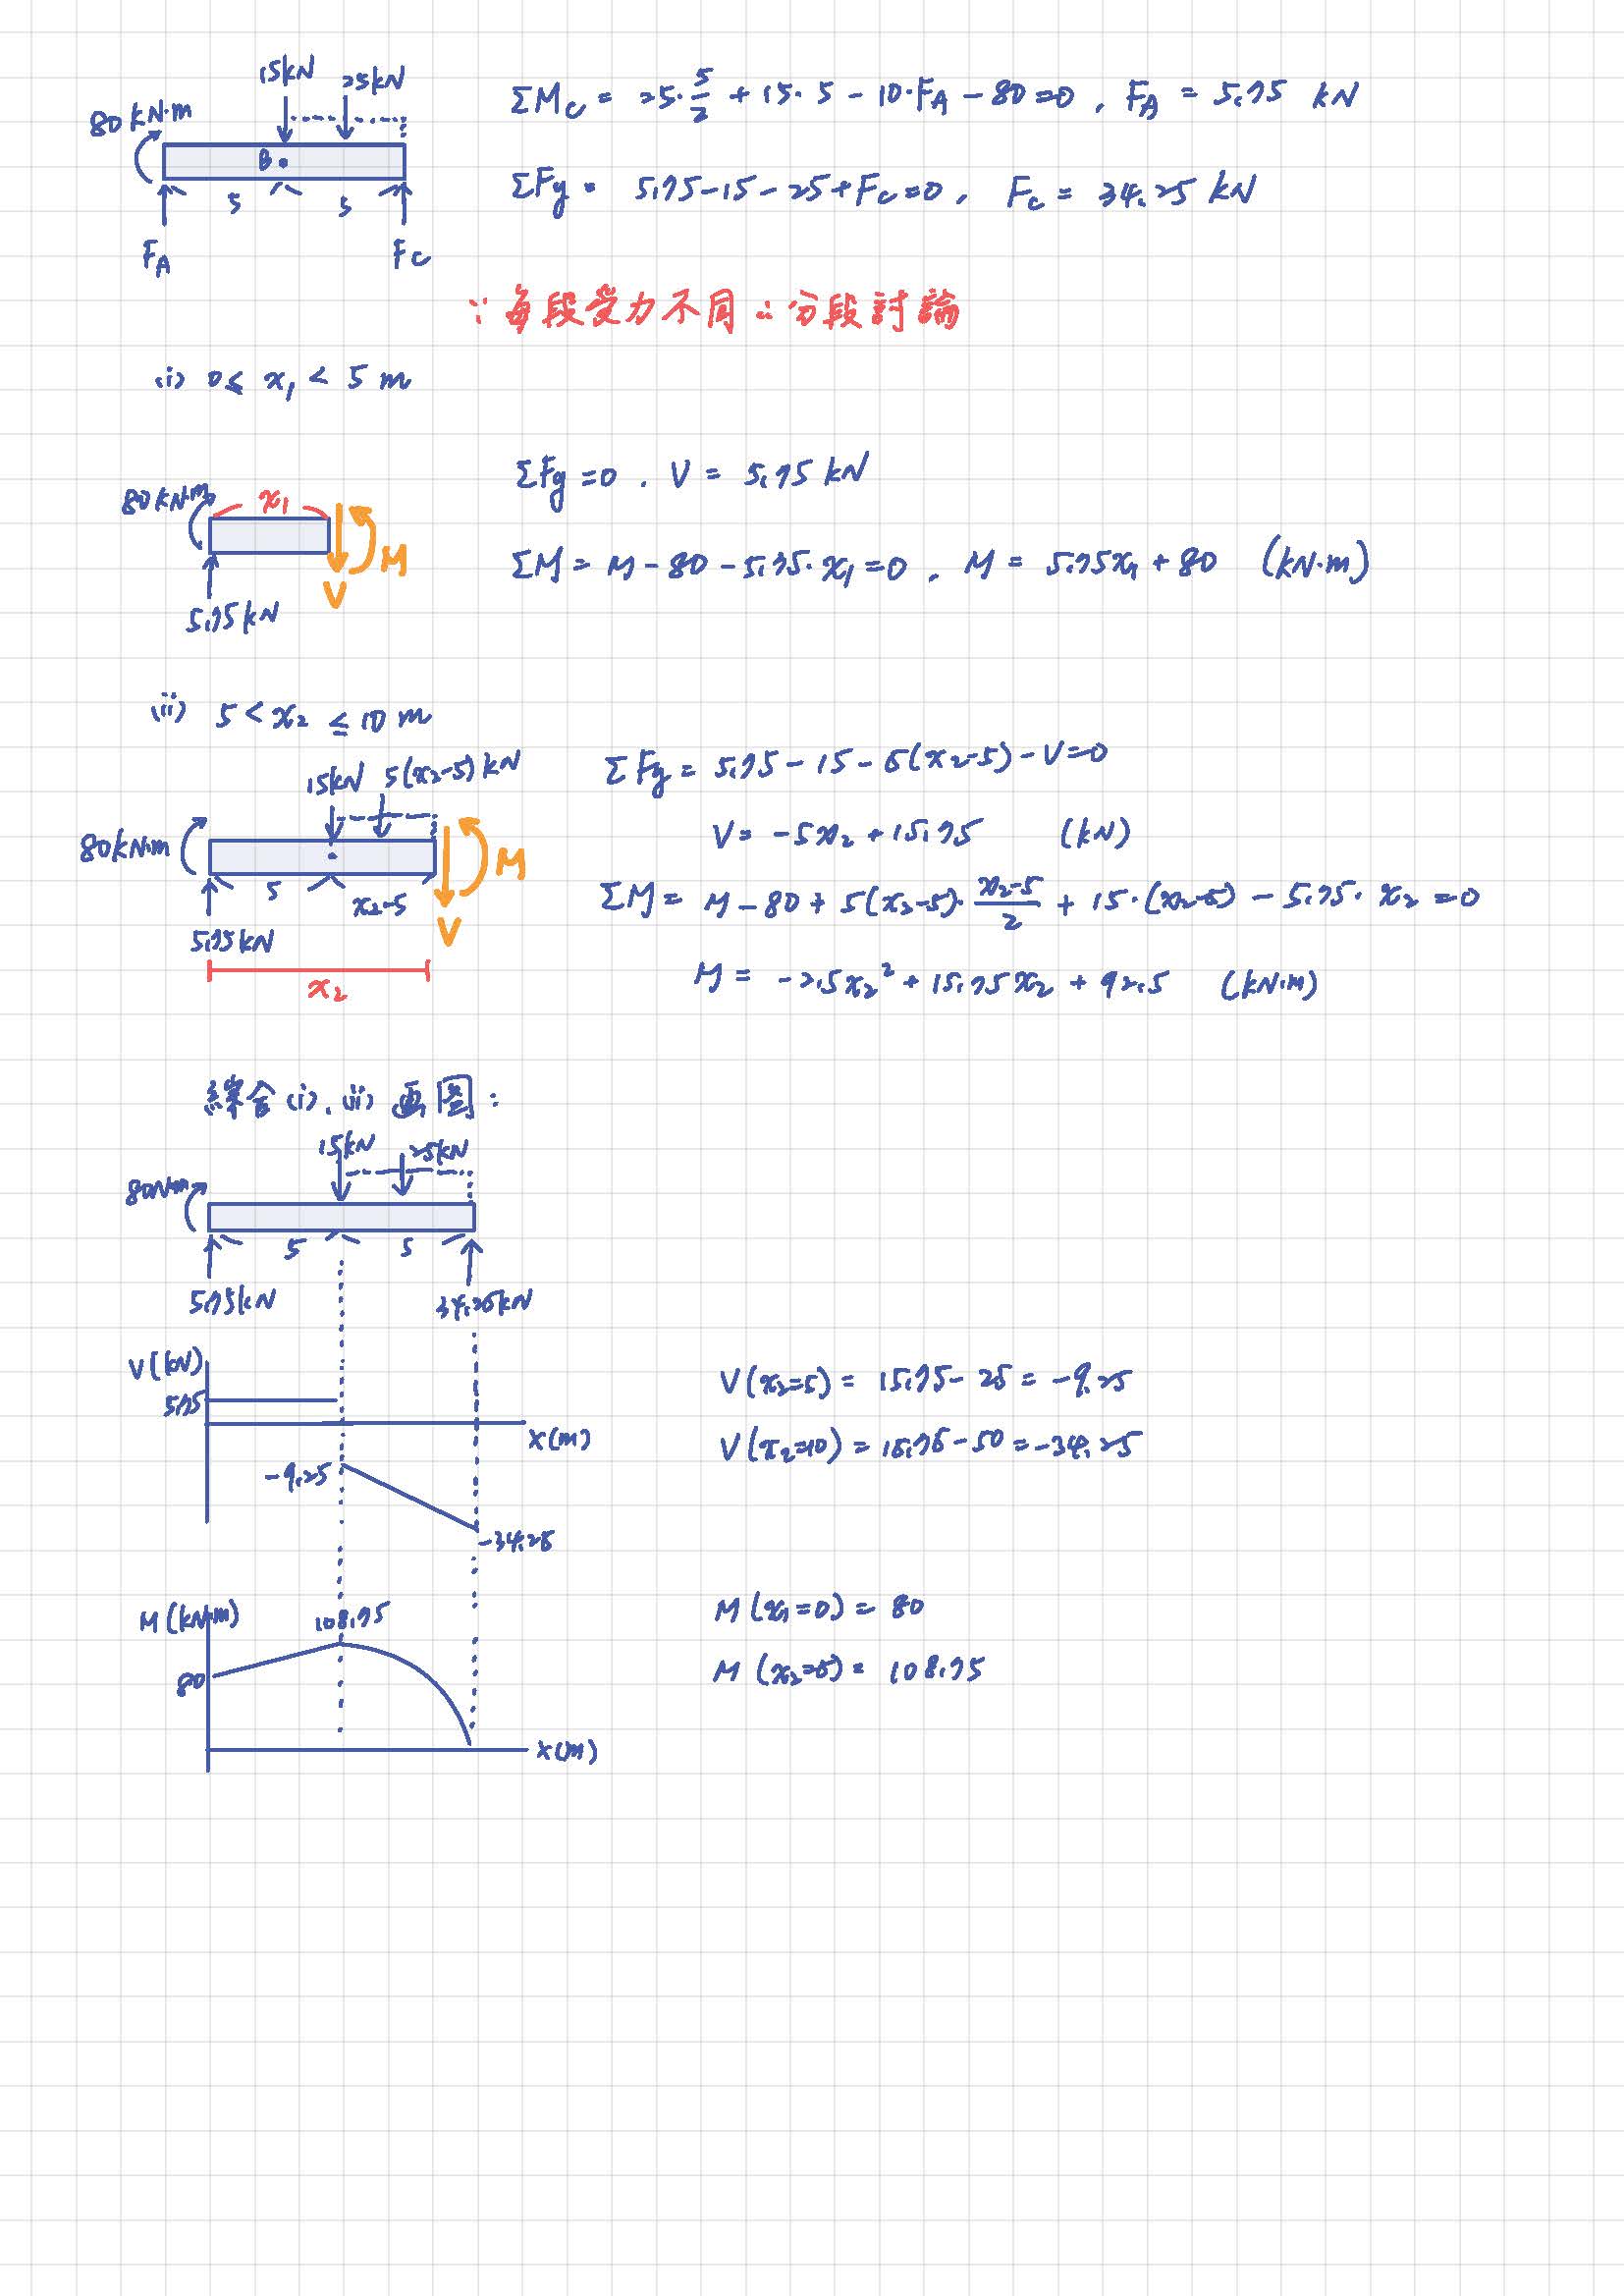 15kN 25kN
80 kN·m
B
5 5
F_A F_C
ΣM_C = 25·5/2 + 15·5 - 10·F_A - 80 = 0 , F_A = 5.75 kN
ΣFy = 5.75 - 15 - 25 + F_C = 0 , F_C = 34.25 kN
∵ 每段受力不同 ∴ 分段討論
(i) 0 ≤ x₁ < 5 m
80 kN·m x₁
M
V
5.75 kN
ΣFy = 0 . V = 5.75 kN
ΣM = M - 80 - 5.75·x₁ = 0 , M = 5.75x₁ + 80 (kN·m)
(ii) 5 < x₂ ≤ 10 m
15kN 5(x₂-5) kN
80kN·m
5 x₂-5
M
V
5.75kN
x₂
ΣFy = 5.75 - 15 - 5(x₂-5) - V = 0
V = -5x₂ + 15.75 (kN)
ΣM = M - 80 + 5(x₂-5)·(x₂-5)/2 + 15·(x₂-5) - 5.75·x₂ = 0
M = -2.5x₂² + 15.75x₂ + 92.5 (kN·m)
綜合(i).(ii) 画圖:
15kN 25kN
80N·m
5 5
5.75kN 34.25kN
V(kN)
5.75
x(m)
-9.25
-34.25
V(x₂=5) = 15.75 - 25 = -9.25
V(x₂=10) = 15.75 - 50 = -34.25
M(kN·m) 108.75
80
x(m)
M(x₁=0) = 80
M(x₂=5) = 108.75